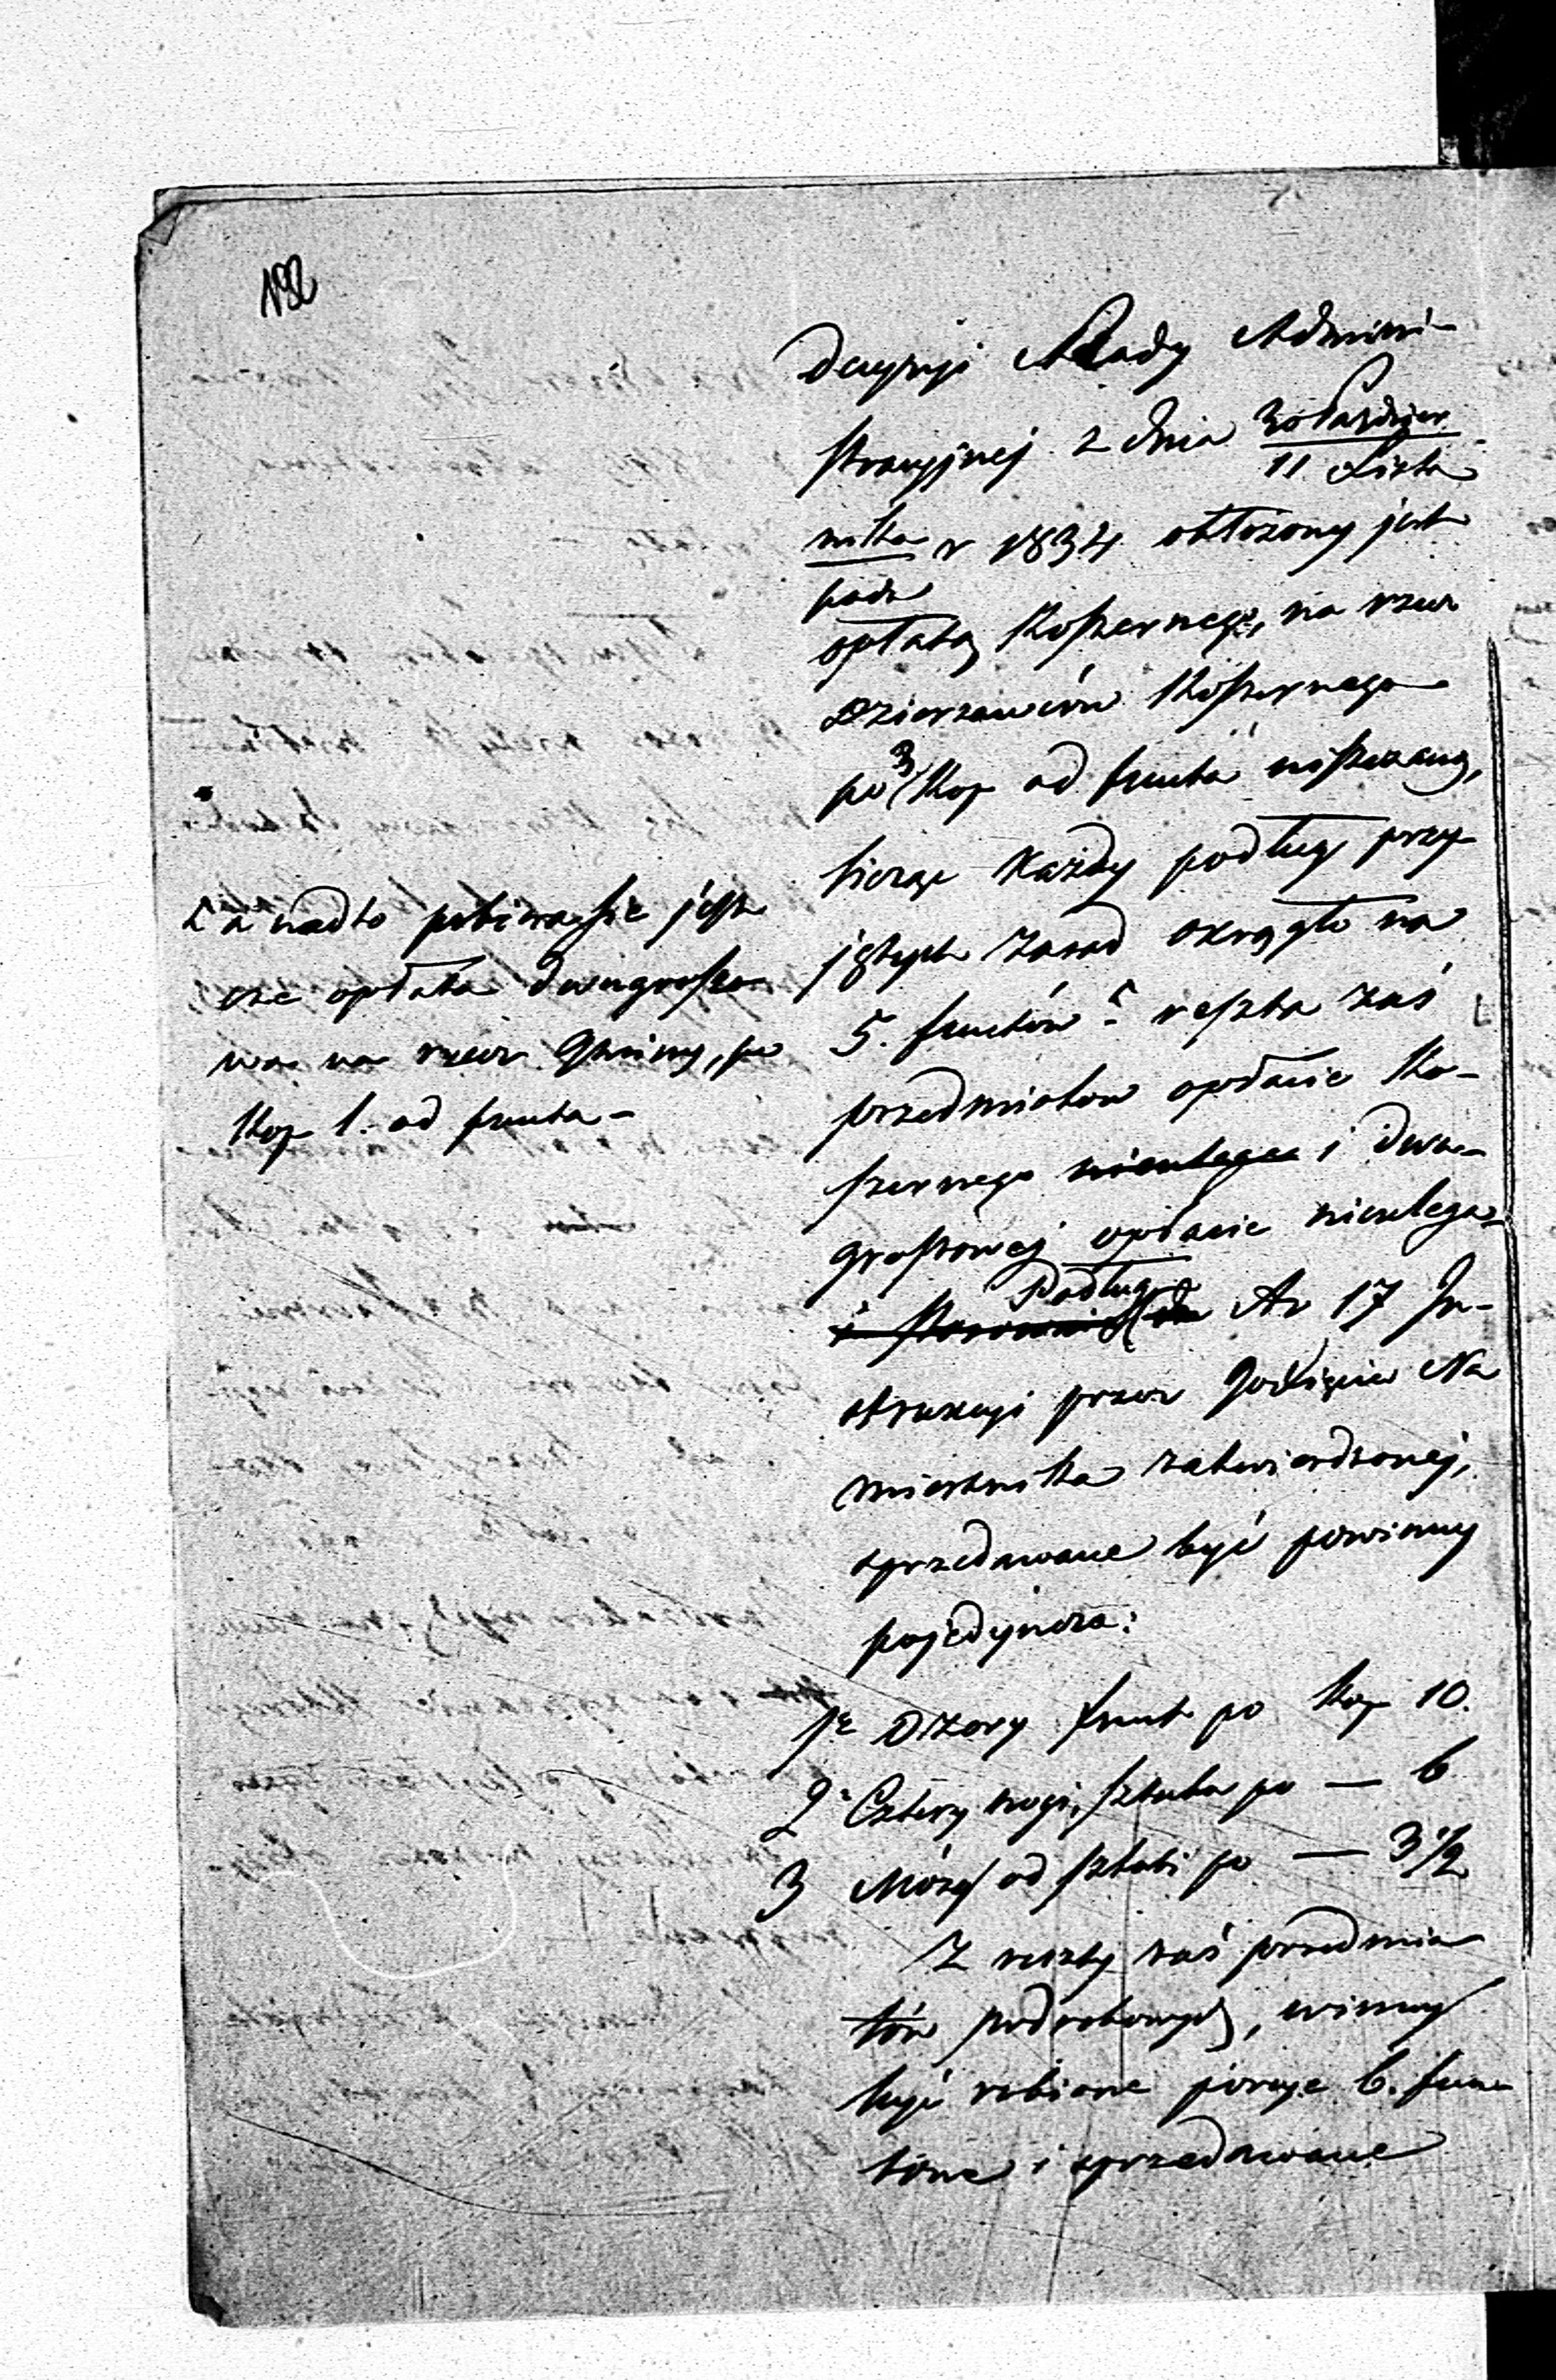 192
Decyzyi Rady Admini-
stracyjnej z dnia 30 Paździer
11 Listo
nika r 1834 obłożony jest
pada
opłatą Koszernego, na rzecz
Dzierżawców Koszernego
po 3 Kop od funta
biorąc każdy podług przy-
jętych zasad okrągło na
5. funtów reszta zaś
przedmiotów opłacie Ko-
szernego nieulegaa i dwu-
groszowej opłacie nieulega
Podług
Ar 17 In-
strukcyi przez JO Xięcia Na
miestnika zatwierdzonej,
sprzedawane być powinny
pojedynczo:
1e Ozory funt po Kop 10.
2e Cztery nogi, sztuka po — 6
3 Mózg od sztuki po — 3 1/2
Z reszty zaś przedmio
tów podrobowych, winny
być robione porcye 6. fun
towe i sprzedawane
a nadto pobiera się jesz
cze opłata dwugroszo
wa na rzecz Gminy, po
Kop 1. od funta -